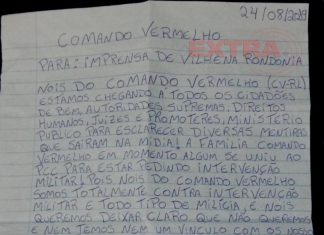 24/08/2019
EXTRA
COMANDO VERMELHO
PARA: IMPRENSA DE VILHENA RONDONIA
NOIS DO COMANDO VERMELHO (CV-RL)
ESTAMOS CHEGANDO A TODOS OS CIDADÕES
DE BEM, AUTORIDADES SUPREMAS. DIREITOS
HUMANOS, JUIZES E PROMOTERES, MINISTERIO
PUBLICO PARA ESCLARECER DIVERSAS MENTIRAS
QUE SAIRAM NA MIDIA! A FAMILIA COMANDO
VERMELHO EM MOMENTO ALGUM SE UNIU AO
PCC PARA ESTAR PEDINDO INTERVENÇÃO
MILITAR! POIS NOIS DO COMANDO VERMELHO
SOMOS TOTALMENTE CONTRA INTERVENÇÃO
MILITAR E TODO TIPO DE MILICIA, E NOIS
QUEREMOS DEIXAR CLARO QUE NÃO QUEREMOS
E NEM TEMOS NEM UM VINCULO COM OS NOSSO